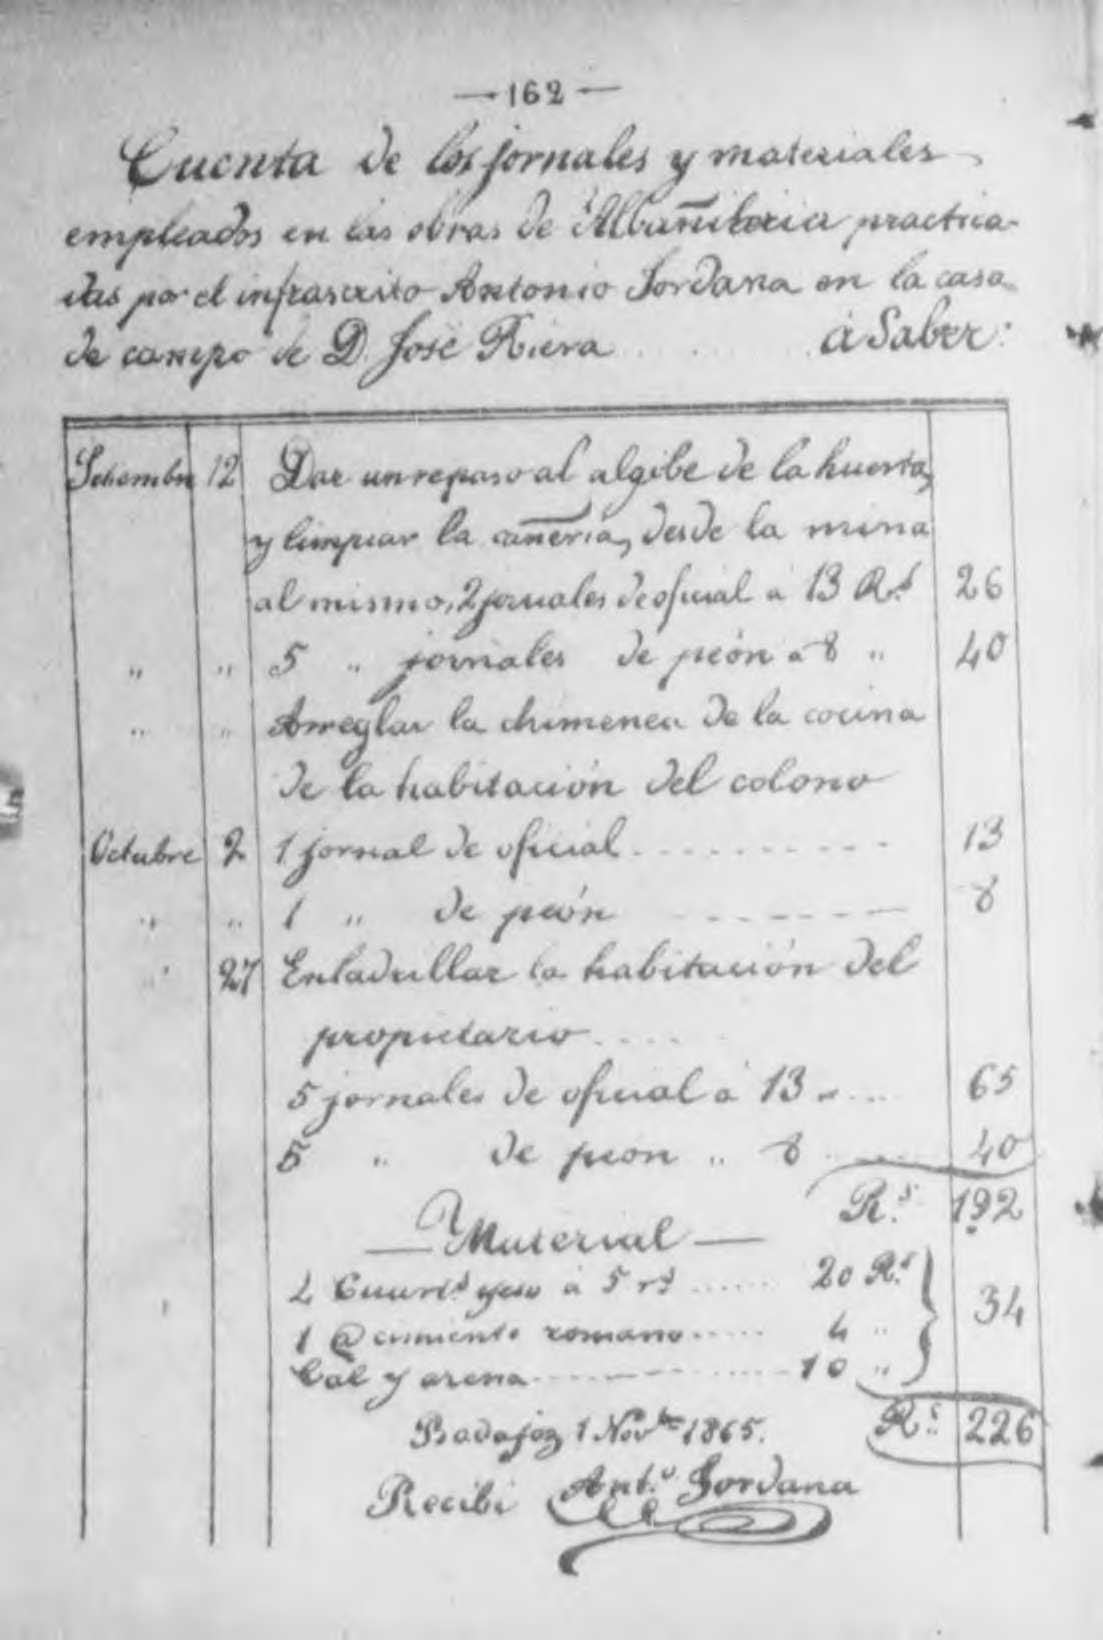 — 162 —
Cuenta de los jornales y materiales
empleados en las obras de Albañileria practica-
das por el infrascrito Antonio Jordana en la casa
de campo de D. José Riera ..... á Saber:
Setiembre 12 Dar un repaso al algibe de la huerta,
y limpiar la cañería, desde la mina
al mismo, 2 jornales de oficial a 13 R.s 26
" " 5 " jornales de peón a 8 " 40
" " Arreglar la chimenea de la cocina
de la habitación del colono
Octubre 2 1 jornal de oficial .......... 13
" " 1 " de peón ------- 8
" 27 Enladrillar la habitación del
propietario ....
5 jornales de oficial á 13 " ... 65
5 " de peon " 8 ...... 40
R.s 192
— Material —
4 Cuart.s yeso a 5 r.s ...... 20 R.s
1 @ cimiento romano ..... 4 " 34
Cal y arena ---------- 10 "
Badajoz 1 Nov.bre 1865. R.s 226
Recibi Ant.o Jordana